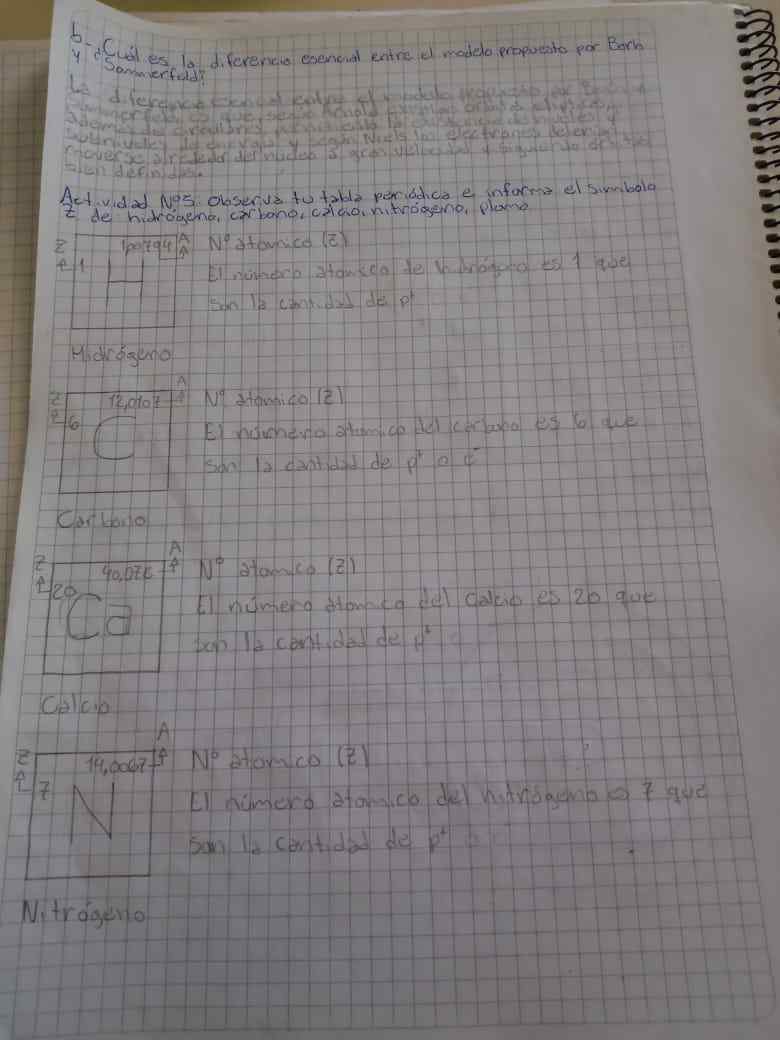 b- ¿Cuál es la diferencia esencial entre el modelo propuesto por Borh
y Sommerfeld?
La diferencia esencial entre el modelo propuesto por y
Sommerfeld, es que, según Arnold
además de circulares, de niveles y
subniveles de energía y según Niels los electrones deberían
moverse alrededor del núcleo a gran velocidad y siguiendo
bien definidas.
Actividad Nº5. Observa tu tabla periódica e informa el simbolo
Z de hidrógeno, carbono, calcio, nitrógeno, plomo
Z 1,00794 A
1 H
Nº atómico (Z)
El número atomico de hidrógeno es 1 que
son la cantidad de p+
Hidrógeno
Z 12,0107 A
6 C
Nº atómico (Z)
El número atomico del carbono es 6 que
son la cantidad de p+ o e-
Carbono
Z A
20 Ca
Nº atomico (Z)
El número atomico del calcio es 20 que
son la cantidad de p+
Calcio
Z 14,0067 A
7 N
Nº atomico (Z)
El número atomico del nitrógeno es 7 que
son la cantidad de p+
Nitrógeno